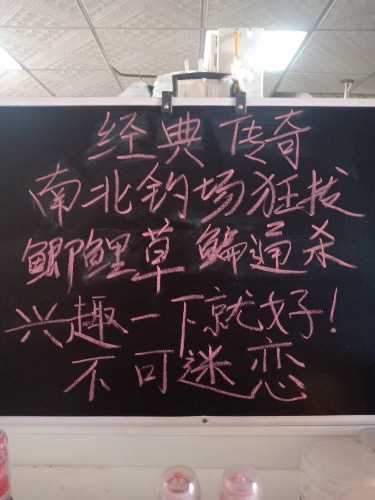 经典传奇
南北钓场狂拔
鲫鲤草鳊通杀
兴趣一下就好!
不可迷恋